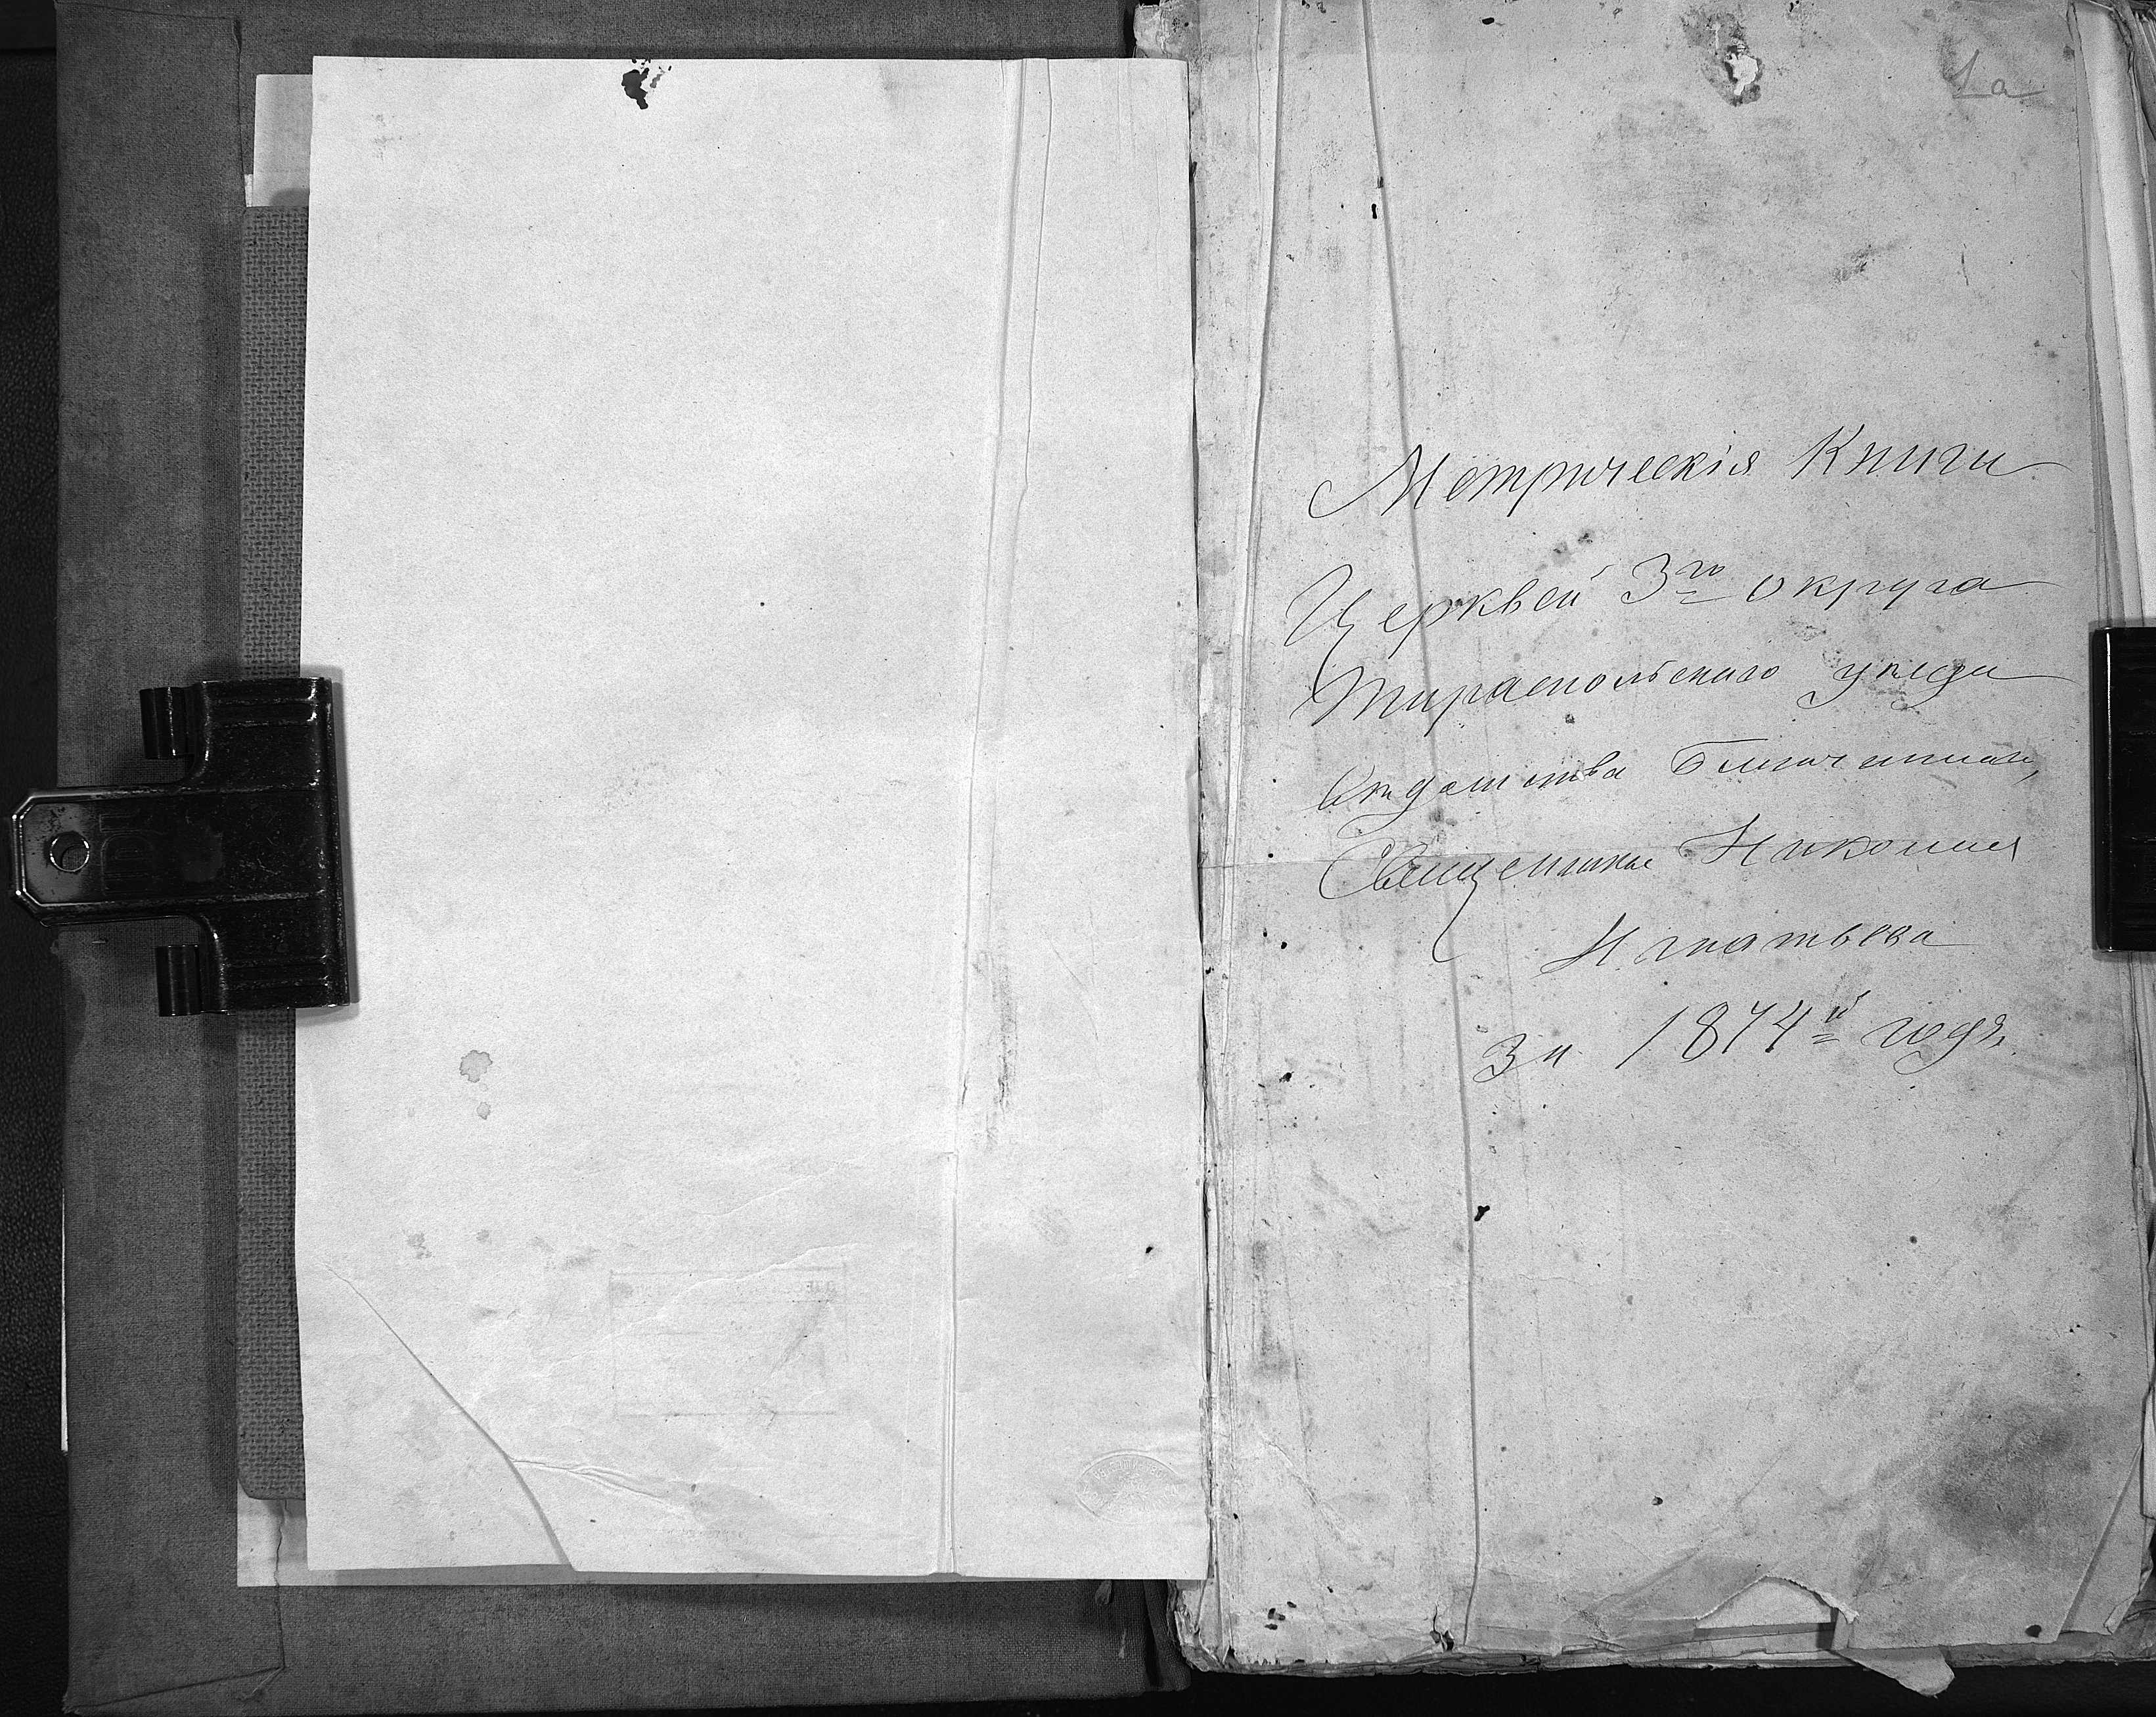 1а
Метрическія Книги
Церквей 3го округа
Тираспольскаго уѣзда
Вѣдомства Благочиннаго,
Священника Николая
Игнатьева
За 1874й годъ.